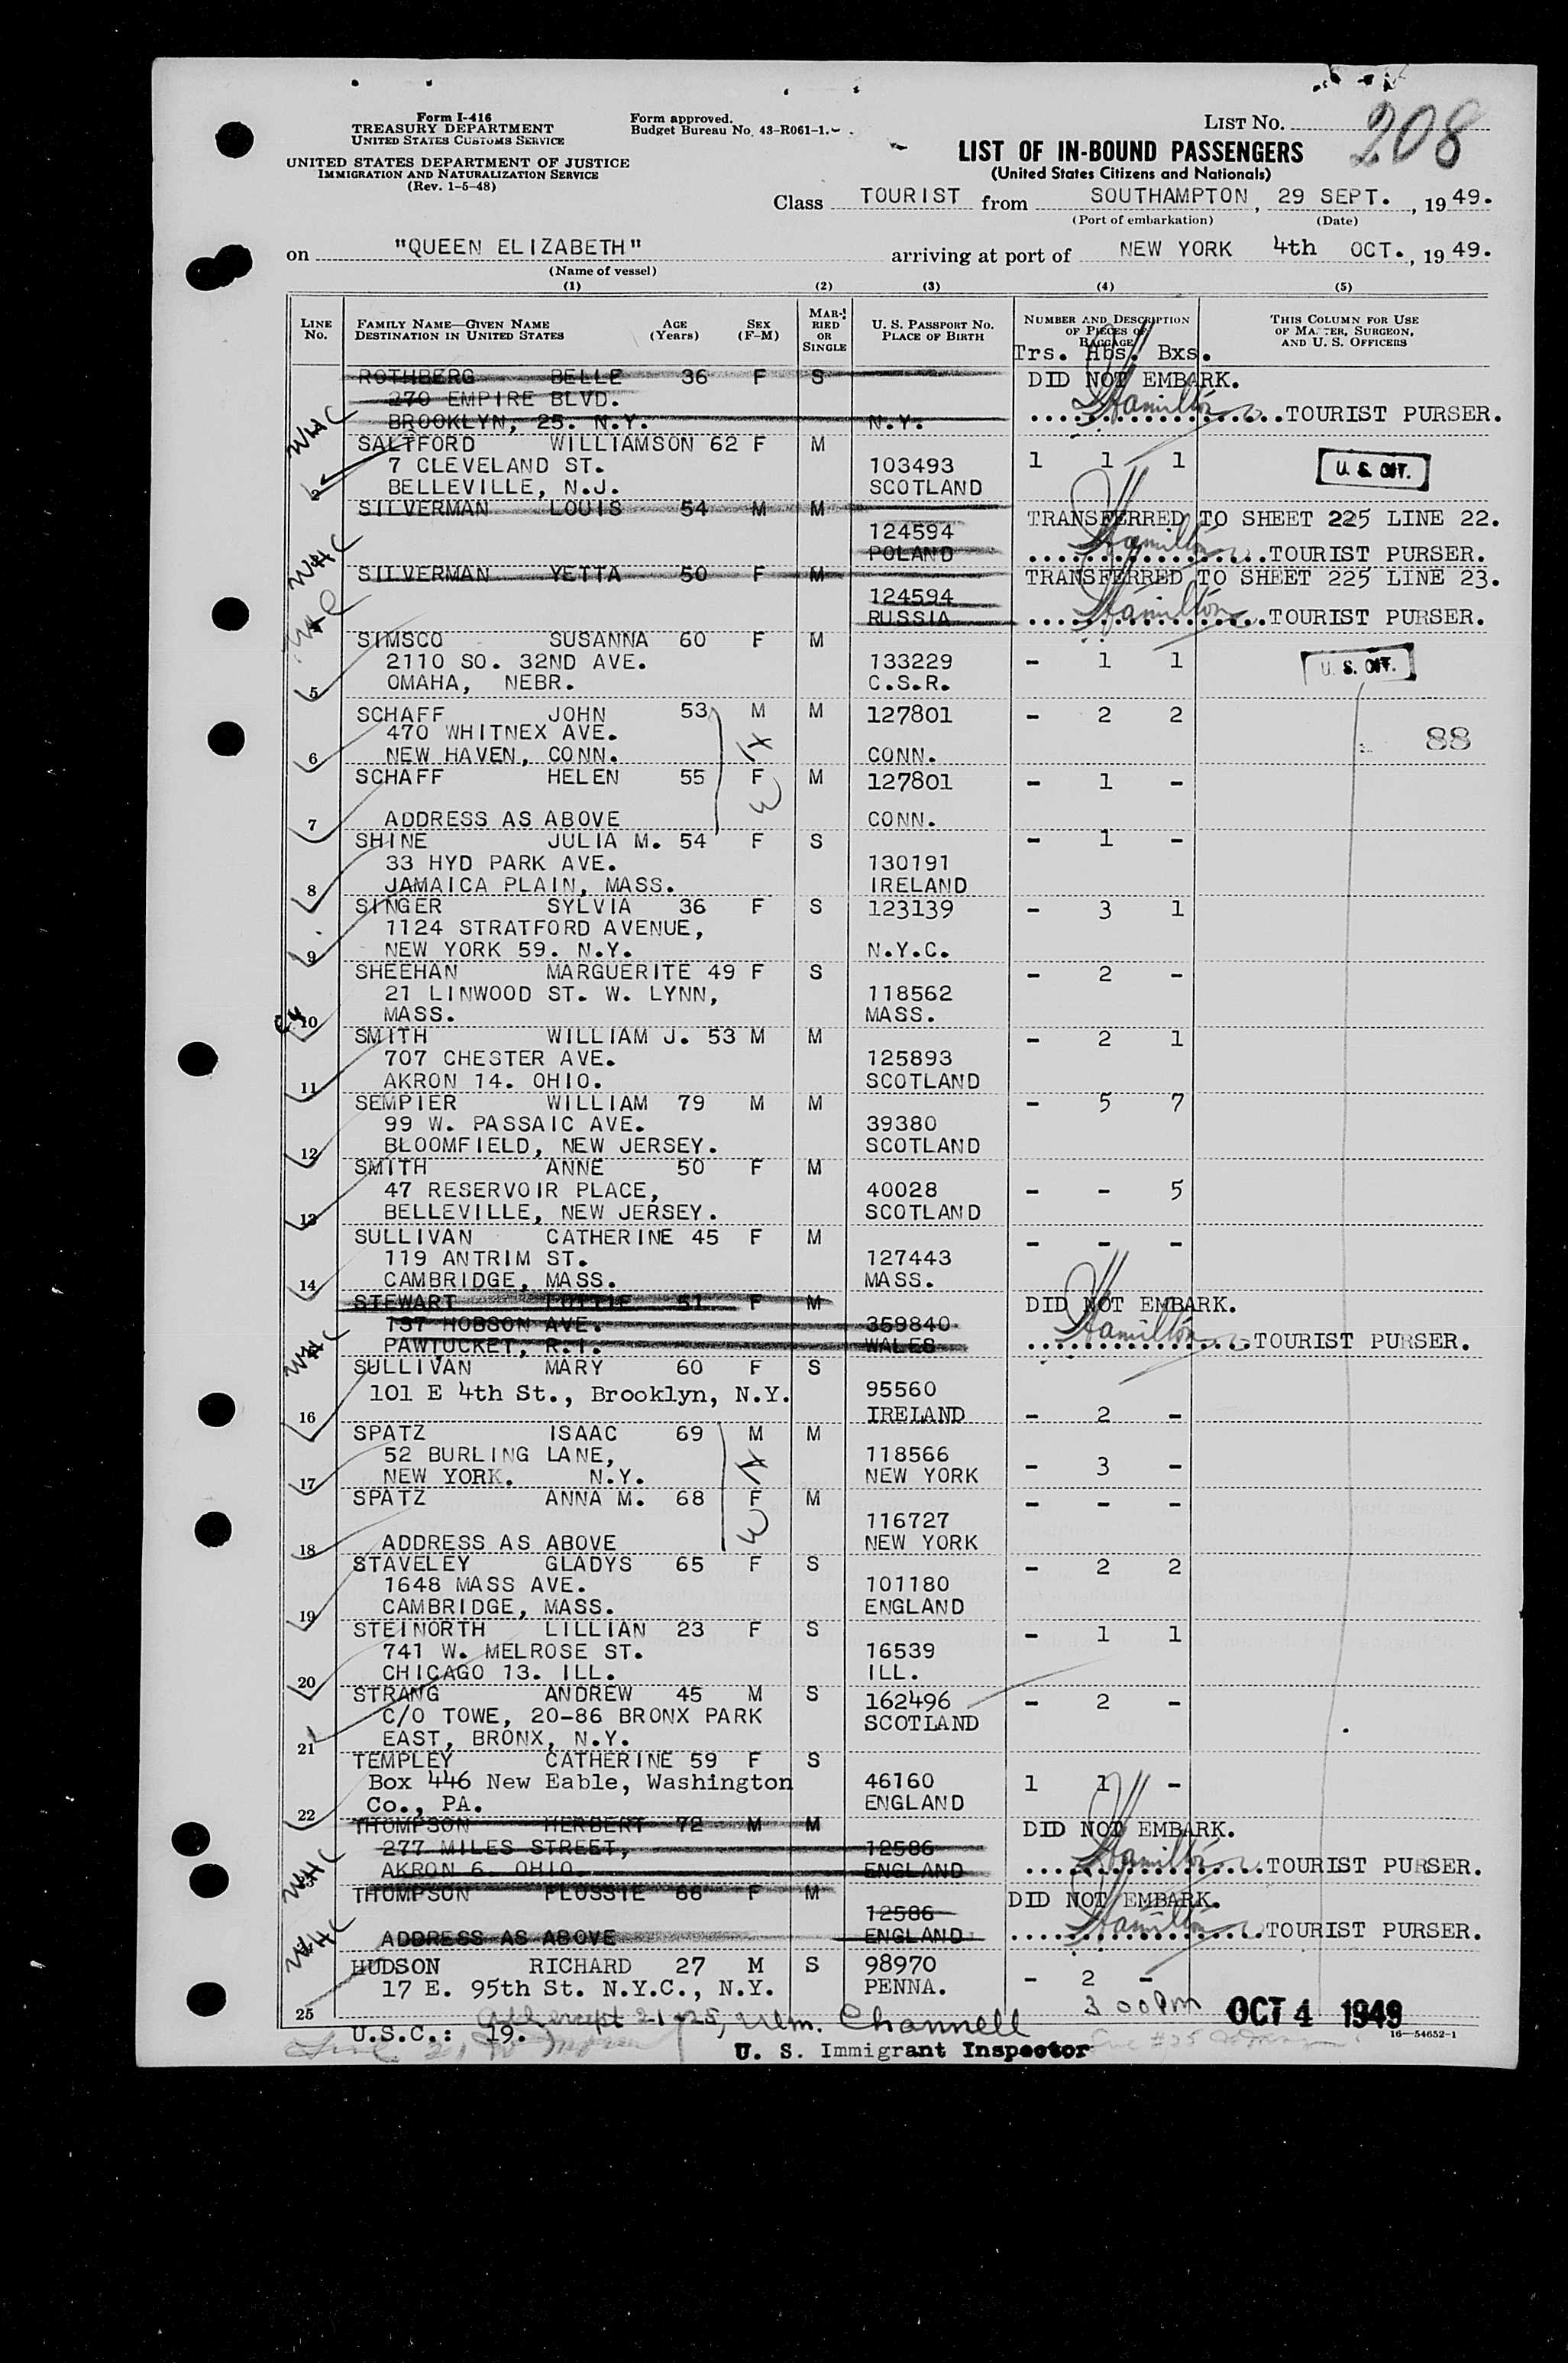 Form I-416
TREASURY DEPARTMENT
UNITED STATES CUSTOMS SERVICE
UNITED STATES DEPARTMENT OF JUSTICE
IMMIGRATION AND NATURALIZATION SERVICE
(Rev. 1-5-48)
Form approved.
Budget Bureau No. 43-R061-1.
LIST No. 208
LIST OF IN-BOUND PASSENGERS
(United States Citizens and Nationals)
Class TOURIST from SOUTHAMPTON, 29 SEPT., 1949.
(Port of embarkation) (Date)
on "QUEEN ELIZABETH" arriving at port of NEW YORK 4th OCT., 1949.
(Name of vessel)
(1) (2) (3) (4) (5)
LINE No. FAMILY NAME—GIVEN NAME DESTINATION IN UNITED STATES AGE (Years) SEX (F-M) MARRIED OR SINGLE U. S. PASSPORT No. PLACE OF BIRTH NUMBER AND DESCRIPTION OF PIECES OF BAGGAGE THIS COLUMN FOR USE OF MASTER, SURGEON, AND U. S. OFFICERS
Trs. Hbs. Bxs.
ROTHBERG BELLE 36 F S DID NOT EMBARK.
270 EMPIRE BLVD. Hamilton
WHC BROOKLYN, 25. N.Y. N.Y. TOURIST PURSER.
SALTFORD WILLIAMSON 62 F M
7 CLEVELAND ST. 103493 1 1 1 U. S. CIT.
2 BELLEVILLE, N.J. SCOTLAND
SILVERMAN LOUIS 54 M M TRANSFERRED TO SHEET 225 LINE 22.
124594 Hamilton
WHC POLAND TOURIST PURSER.
SILVERMAN YETTA 50 F M TRANSFERRED TO SHEET 225 LINE 23.
124594 Hamilton
RUSSIA TOURIST PURSER.
SIMSCO SUSANNA 60 F M
2110 SO. 32ND AVE. 133229 - 1 1 U. S. CIT.
5 OMAHA, NEBR. C.S.R.
SCHAFF JOHN 53 M M 127801 - 2 2
470 WHITNEX AVE. 88
6 NEW HAVEN, CONN. CONN.
SCHAFF HELEN 55 F M 127801 - 1 -
7 ADDRESS AS ABOVE CONN.
SHINE JULIA M. 54 F S - 1 -
33 HYD PARK AVE. 130191
8 JAMAICA PLAIN, MASS. IRELAND
SINGER SYLVIA 36 F S 123139 - 3 1
1124 STRATFORD AVENUE,
9 NEW YORK 59. N.Y. N.Y.C.
SHEEHAN MARGUERITE 49 F S - 2 -
21 LINWOOD ST. W. LYNN, 118562
10 MASS. MASS.
SMITH WILLIAM J. 53 M M - 2 1
707 CHESTER AVE. 125893
11 AKRON 14. OHIO. SCOTLAND
SEMPIER WILLIAM 79 M M - 5 7
99 W. PASSAIC AVE. 39380
12 BLOOMFIELD, NEW JERSEY. SCOTLAND
SMITH ANNE 50 F M
47 RESERVOIR PLACE, 40028 - - 5
13 BELLEVILLE, NEW JERSEY. SCOTLAND
SULLIVAN CATHERINE 45 F M - - -
119 ANTRIM ST. 127443
14 CAMBRIDGE, MASS. MASS.
STEWART LOTTIE 51 F M DID NOT EMBARK.
137 HOBSON AVE. 359840 Hamilton
WHC PAWTUCKET, R.I. WALES TOURIST PURSER.
SULLIVAN MARY 60 F S
101 E 4th St., Brooklyn, N.Y. 95560
16 IRELAND - 2 -
SPATZ ISAAC 69 M M
52 BURLING LANE, 118566 - 3 -
17 NEW YORK. N.Y. NEW YORK
SPATZ ANNA M. 68 F M - - -
116727
18 ADDRESS AS ABOVE NEW YORK
STAVELEY GLADYS 65 F S - 2 2
1648 MASS AVE. 101180
19 CAMBRIDGE, MASS. ENGLAND
STEINORTH LILLIAN 23 F S - 1 1
741 W. MELROSE ST. 16539
20 CHICAGO 13. ILL. ILL.
STRANG ANDREW 45 M S 162496 - 2 -
C/O TOWE, 20-86 BRONX PARK SCOTLAND
21 EAST, BRONX, N.Y.
TEMPLEY CATHERINE 59 F S
Box 446 New Eable, Washington 46160 1 1 -
22 Co., PA. ENGLAND
THOMPSON HERBERT 72 M M DID NOT EMBARK.
277 MILES STREET, 12586 Hamilton
WHC AKRON 6. OHIO. ENGLAND TOURIST PURSER.
THOMPSON FLOSSIE 66 F M DID NOT EMBARK.
12586 Hamilton
WHC ADDRESS AS ABOVE ENGLAND TOURIST PURSER.
HUDSON RICHARD 27 M S 98970 - 2 -
17 E. 95th St. N.Y.C., N.Y. PENNA.
25 3 00 Pm OCT 4 1949
U.S.C.: 19. All except 21-25, Wm. Channell
16—54652-1
U. S. Immigrant Inspector